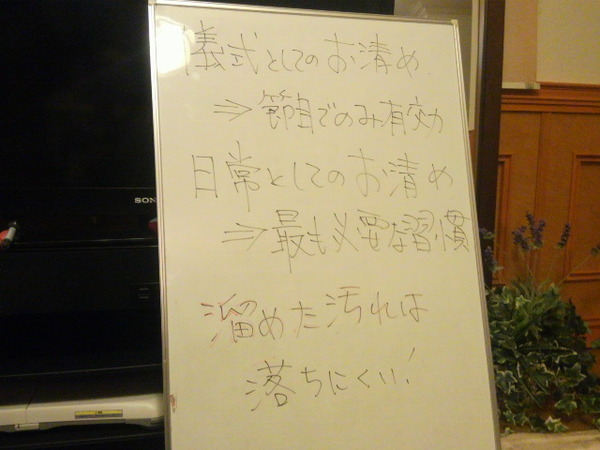 儀式としてのお清め
⇒節目でのみ有効
SONY
日常としてのお清め
⇒最も必要な習慣
溜めた汚れは
落ちにくい!